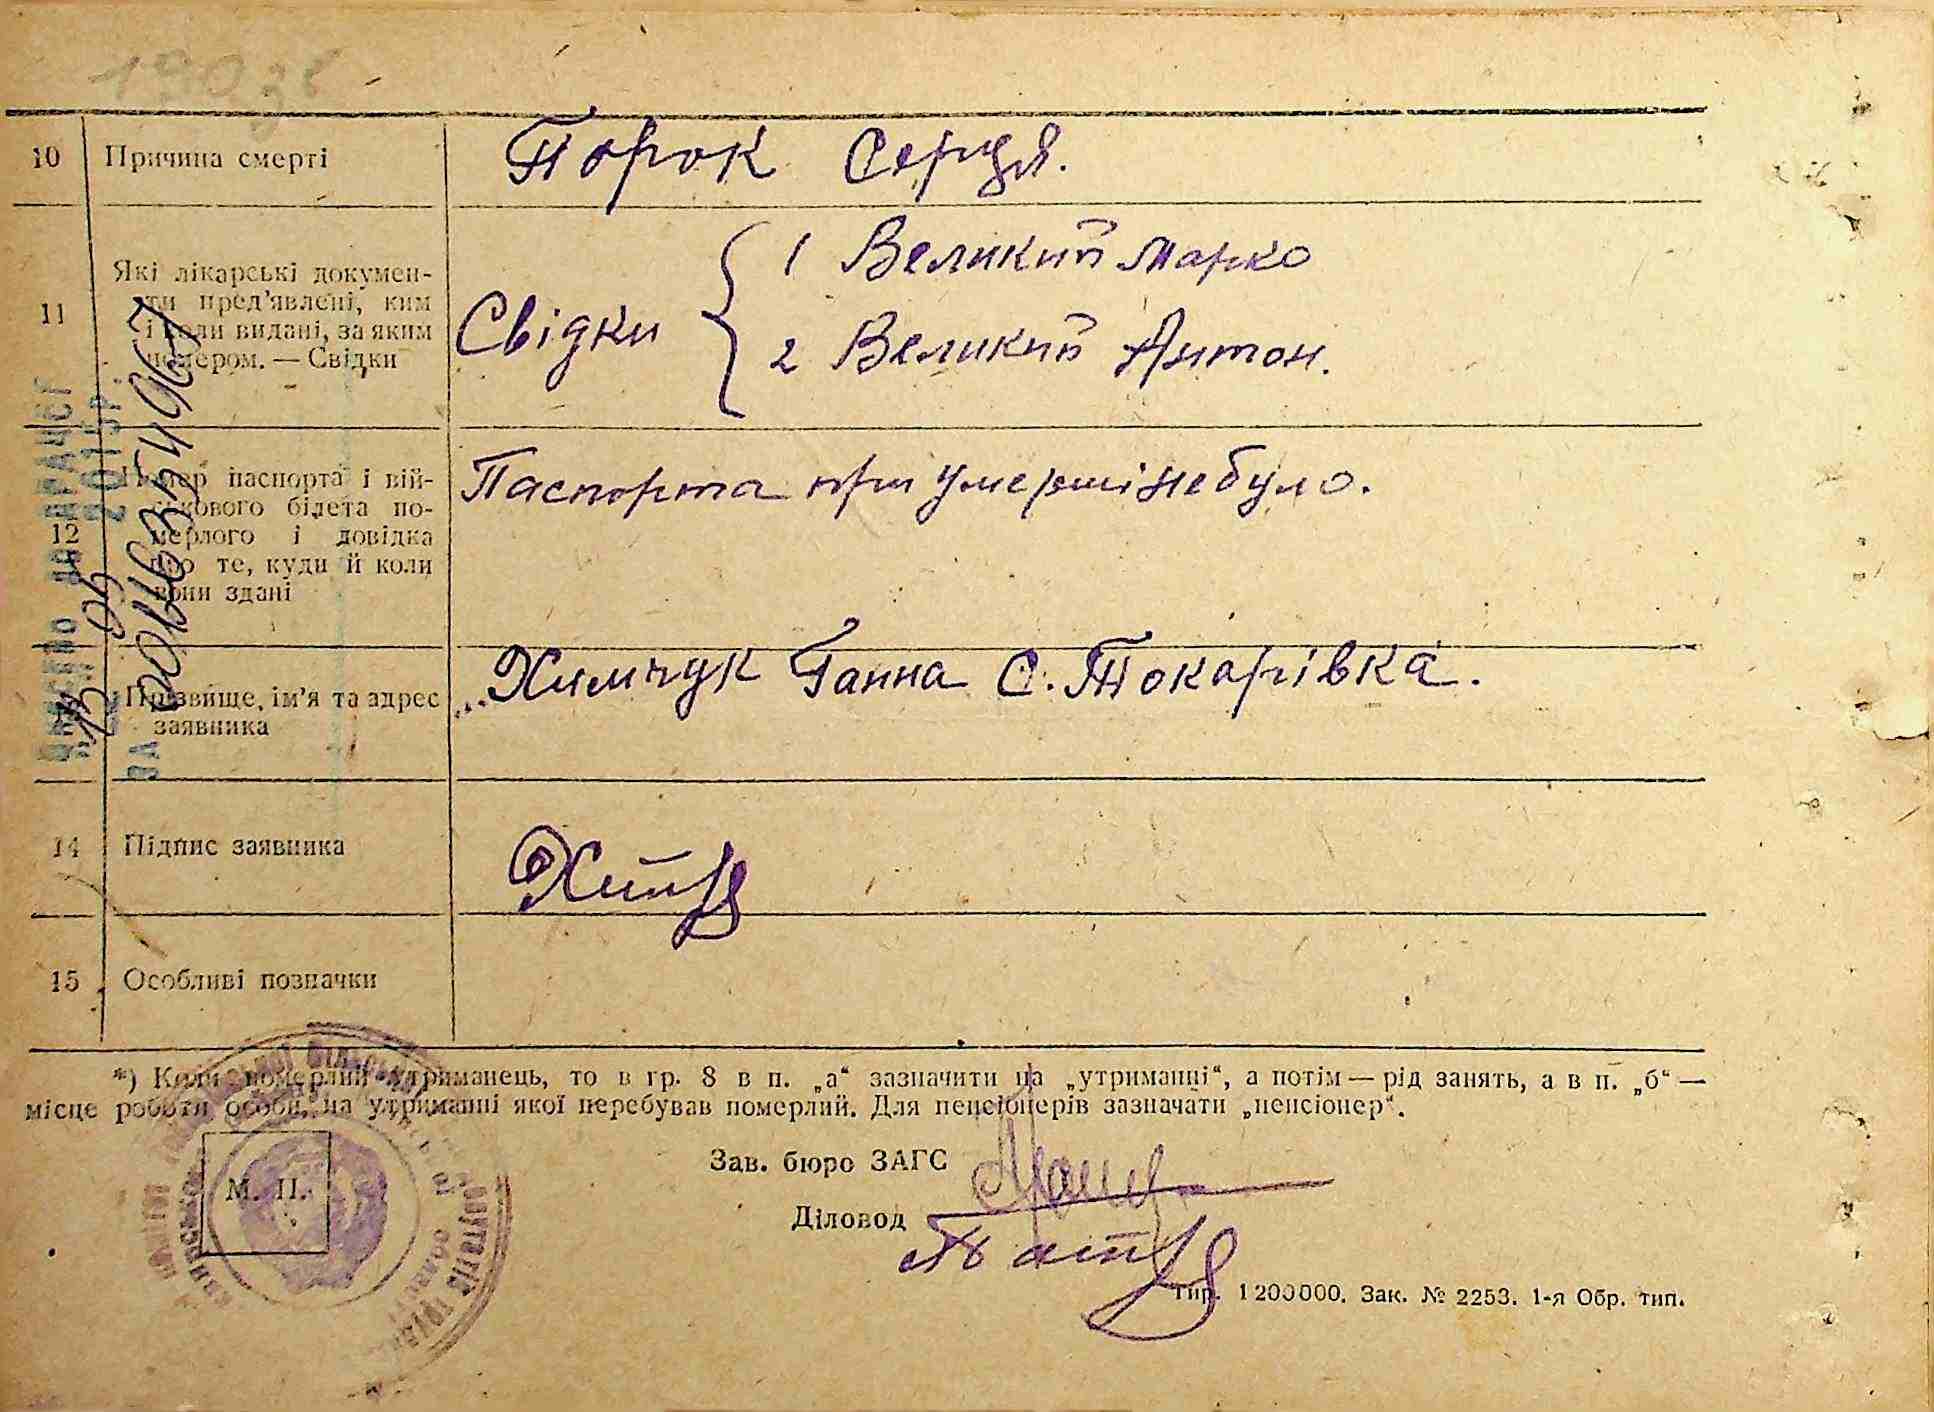 10 Причина смерті Порок Серця.
11 Які лікарські докумен-
ти пред'явлені, ким
і коли видані, за яким
номером. — Свідки
Свідки
1 Великий Марко
2 Великий Антон.
12 Номер паспорта і вій-
ськового білета по-
мерлого і довідка
про те, куди й коли
вони здані
Паспорта при умершінебуло.
Прізвище, ім'я та адрес
заявника
Химчук Ганна С. Токарівка.
14 Підпис заявника
15 Особливі позначки
*) Коли померлий утриманець, то в гр. 8 в п. „а“ зазначити на „утриманні“, а потім — рід занять, а в п. „б“ —
місце роботи особи, на утриманні якої перебував померлий. Для пенсіонерів зазначати „пенсіонер“.
М. П.
Зав. бюро ЗАГС
Діловод
Тир. 1200000. Зак. № 2253. 1-я Обр. тип.